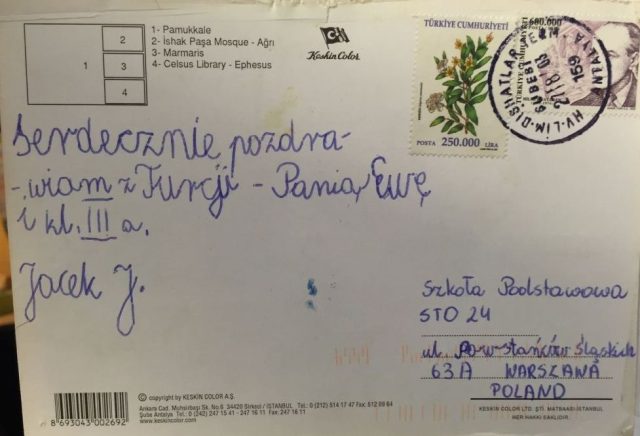 1
2
3
4
1- Pamukkale
2- İshak Paşa Mosque - Ağrı
3- Marmaris
4- Celsus Library - Ephesus
Keskin Color
TÜRKİYE CUMHURİYETİ
POSTA 250.000 LİRA
600.000
TÜRKİYE CUMHURİYETİ
HV-LİM-DIŞHATLAR
ANTALYA
159
Serdecznie pozdra-
-wiam z Turcji - Panią Ewę
i kl. III a.
Jacek J.
Szkoła Podstawowa
STO 24
ul. Powstańców Śląskich
63A WARSZAWA
POLAND
© copyright by KESKIN COLOR A.Ş.
Ankara Cad. Muhsirbaşı Sk. No.6 34420 Sirkeci / İSTANBUL Tel.: 0 (212) 514 17 47 Fax. 512 09 64
Şube Antalya Tel.: 0 (242) 247 15 41 - 247 16 11 Fax. 247 16 11
www.keskincolor.com
8 693043 002692
KESKIN COLOR LTD. ŞTİ. MATBAASI-İSTANBUL
HER HAKKI SAKLIDIR.